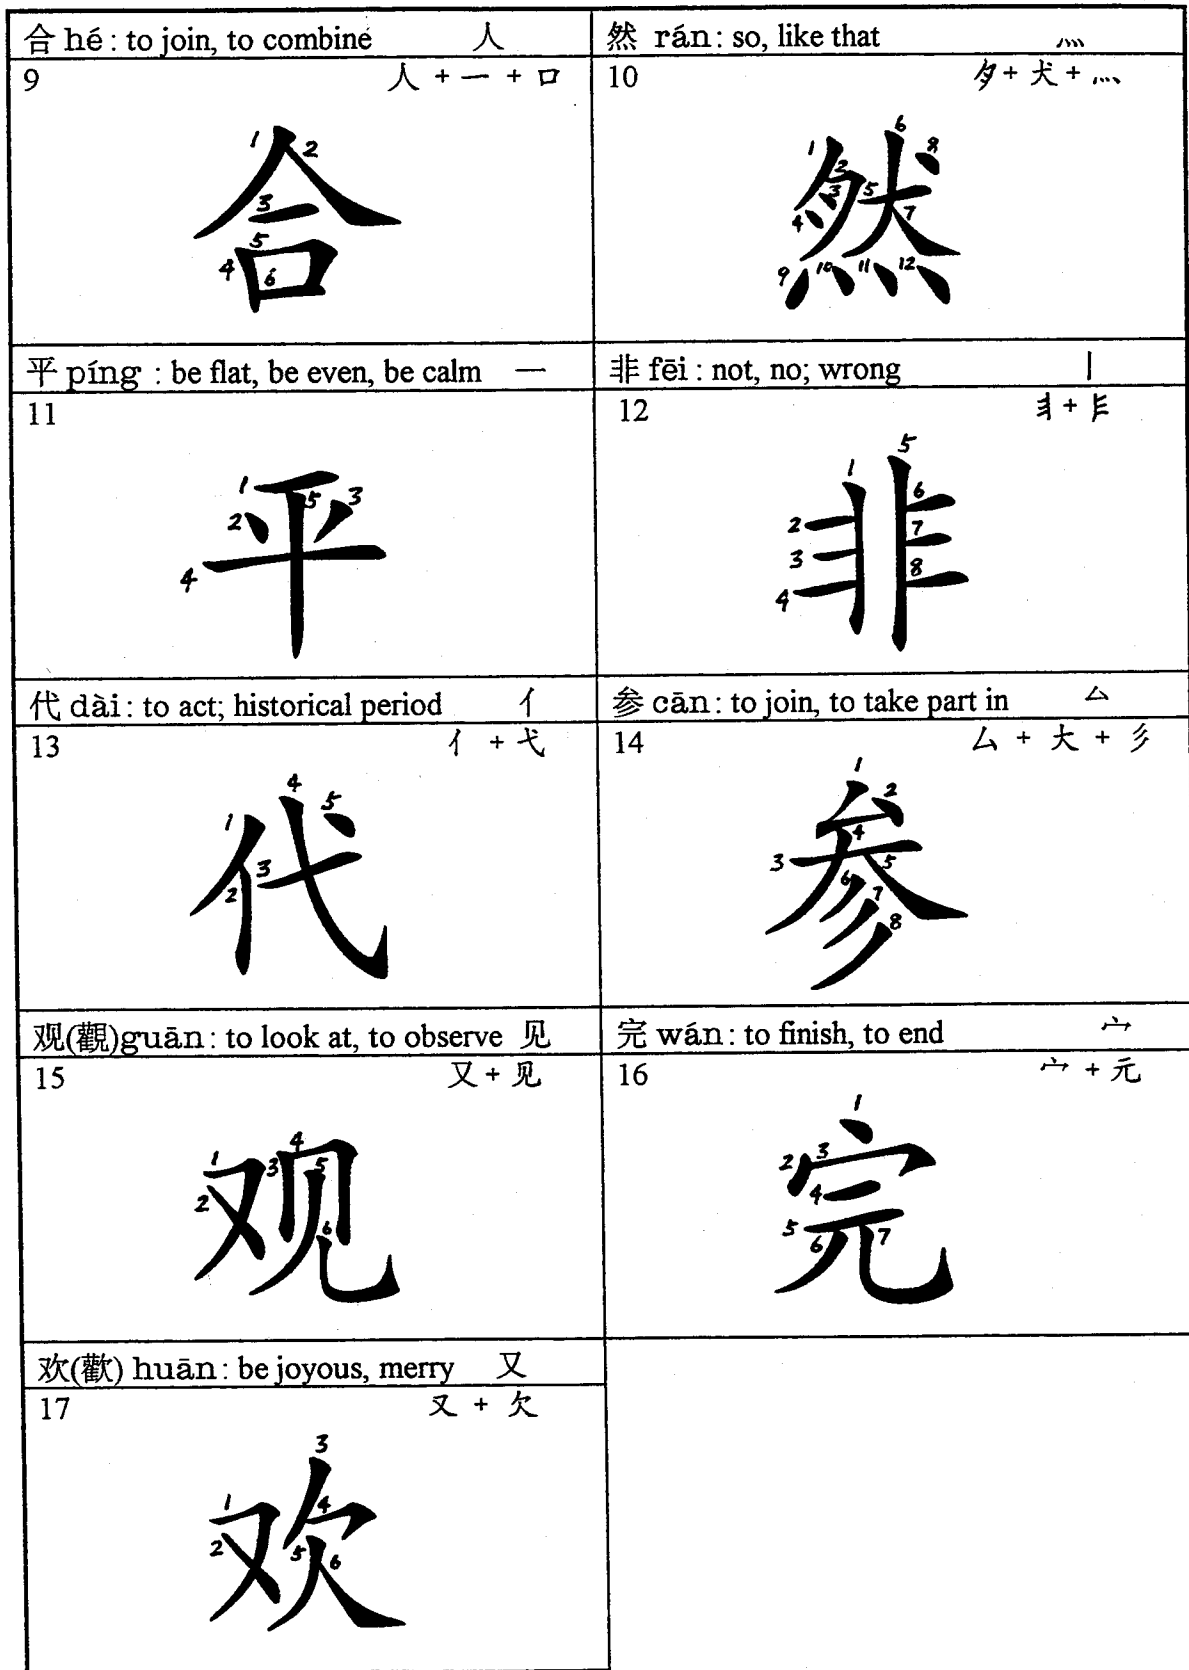 合 hé : to join, to combine 人
9 人 + 一 + 口
1 2 3 4 5 6
合
然 rán : so, like that 灬
10 夕 + 犬 + 灬
1 2 3 4 5 6 7 8 9 10 11 12
然
平 píng : be flat, be even, be calm 一
11
1 2 3 4 5
平
非 fēi : not, no; wrong 丨
12 丯 + 𠃛
1 2 3 4 5 6 7 8
非
代 dài : to act; historical period 亻
13 亻 + 弋
1 2 3 4 5
代
参 cān : to join, to take part in 厶
14 厶 + 大 + 彡
1 2 3 4 5 6 7 8
参
观(觀)guān : to look at, to observe 见
15 又 + 见
1 2 3 4 5 6
观
完 wán : to finish, to end 宀
16 宀 + 元
1 2 3 4 5 6 7
完
欢(歡) huān : be joyous, merry 又
17 又 + 欠
1 2 3 4 5 6
欢